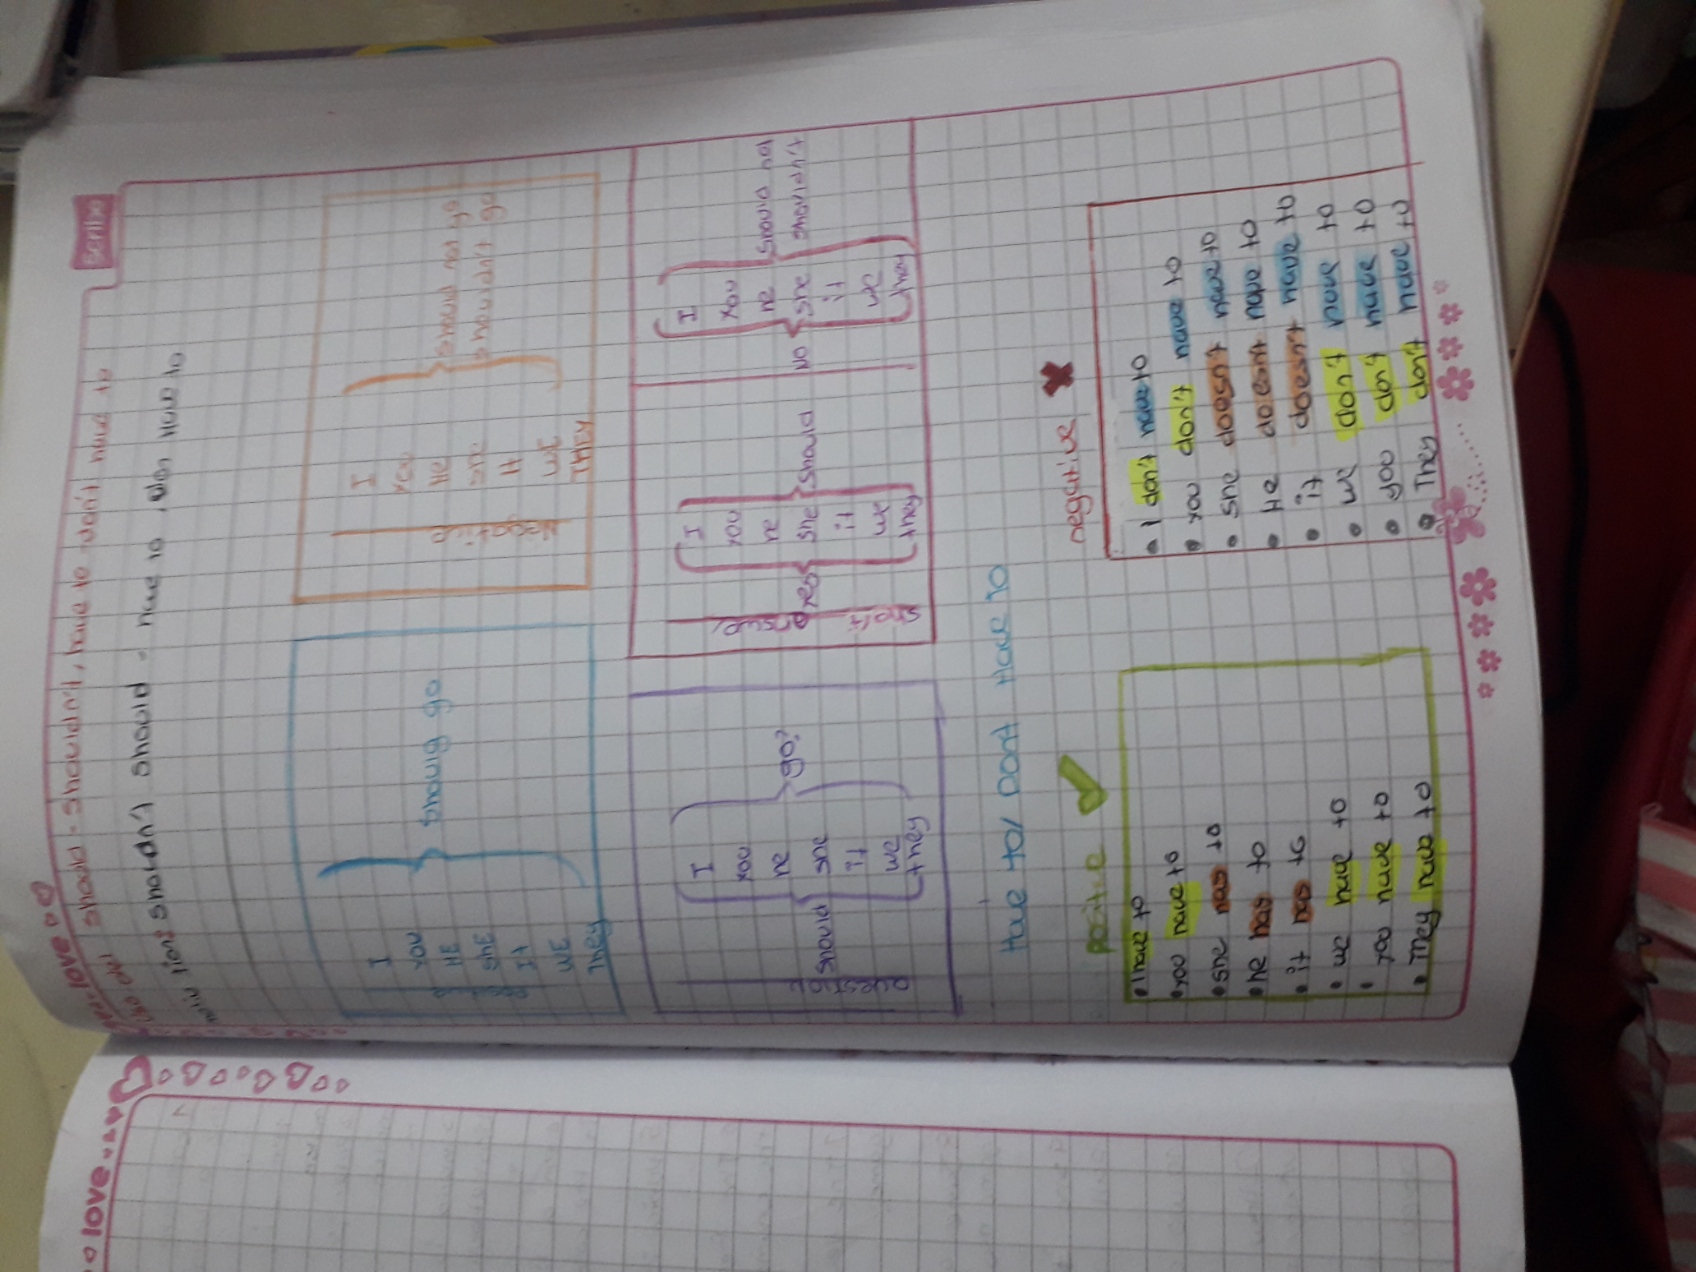 love
should - shouldn't, have to - don't have to
shouldn't should - have to, don have to
scribe
I
you
HE
SHE
It
WE
They
should go
I
YOU
HE
SHE
It
WE
THEY
should not go
shouldn't go
should
I
you
he
she
it
we
they
go?
Yes
I
you
he
she
it
we
they
should
NO
I
you
he
she
it
we
they
should not
shouldn't
Have to/ Dont Have to
positive
• I have to
• you have to
• she has to
• he has to
• it has to
• we have to
• you have to
• They have to
negative
• I don't have to
• you don't have to
• she doesn't have to
• He doesn't have to
• it doesn't have to
• we don't have to
• you don't have to
• They don't have to
love